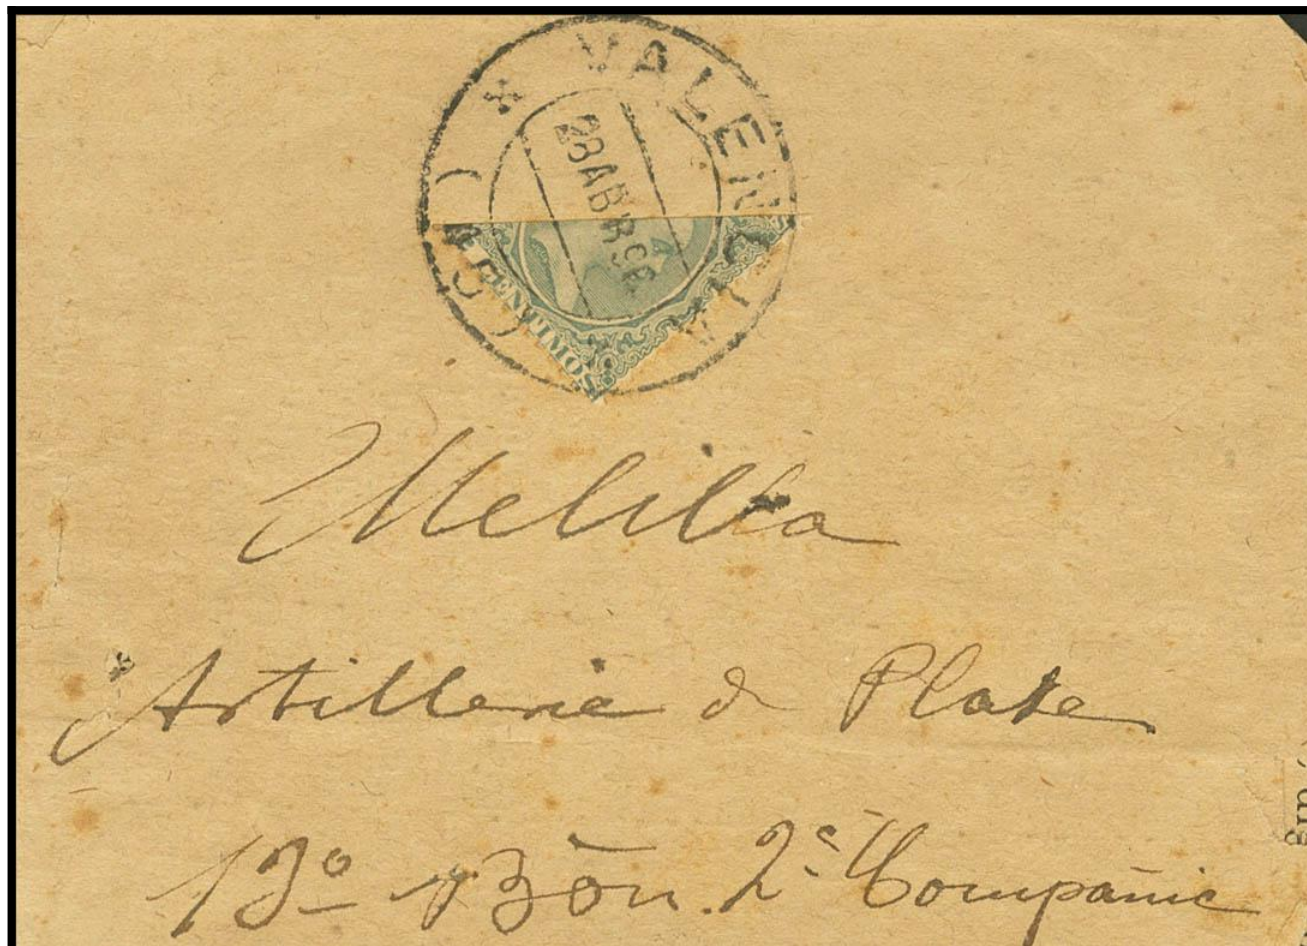 VALENCIA
28 ABR 96
CENTIMOS
Melilla
Artilleria de Plaza
13º Bòn. 2ª Compañia